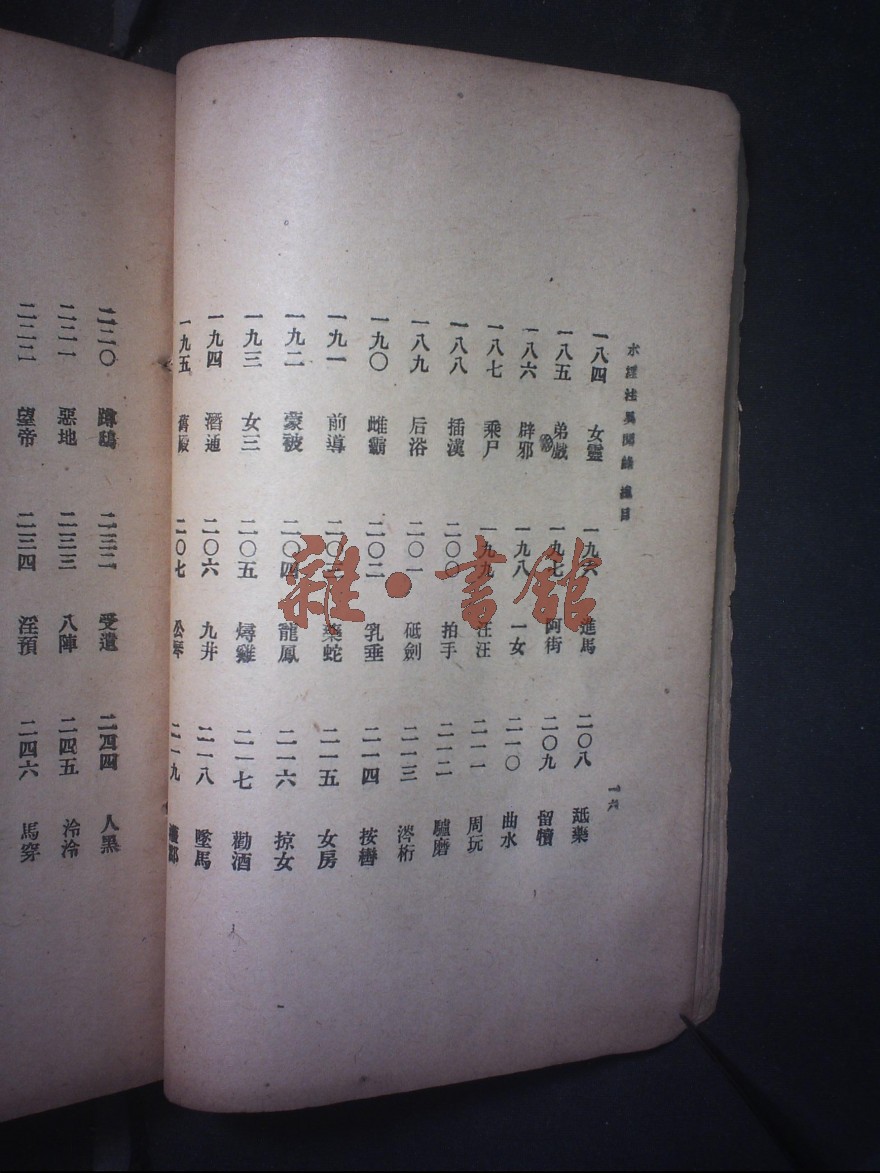 水經注異聞錄 總目
一八四 女靈
一八五 弟戲
一八六 辟邪
一八七 乘尸
一八八 插漢
一八九 后浴
一九〇 雌霸
一九一 前導
一九二 蒙被
一九三 女三
一九四 潛通
一九五 舊殿
一九六 進馬
一九七 阿街
一九八 一女
一九九 汪汪
二〇〇 拍手
二〇一 砥劍
二〇二 乳垂
二〇三 藥蛇
二〇四 龍鳳
二〇五 燖雞
二〇六 九井
二〇七 公琴
二〇八 舐藥
二〇九 留犢
二一〇 曲水
二一一 周玩
二一二 驢磨
二一三 涔桁
二一四 按轡
二一五 女房
二一六 掠女
二一七 勸酒
二一八 墜馬
二一九
一六
二二〇 蹲鴟
二二一 惡地
二二二 望帝
二三二 受遺
二三三 八陣
二三四 淫預
二四四 人黑
二四五 泠泠
二四六 馬穿
雜·書館